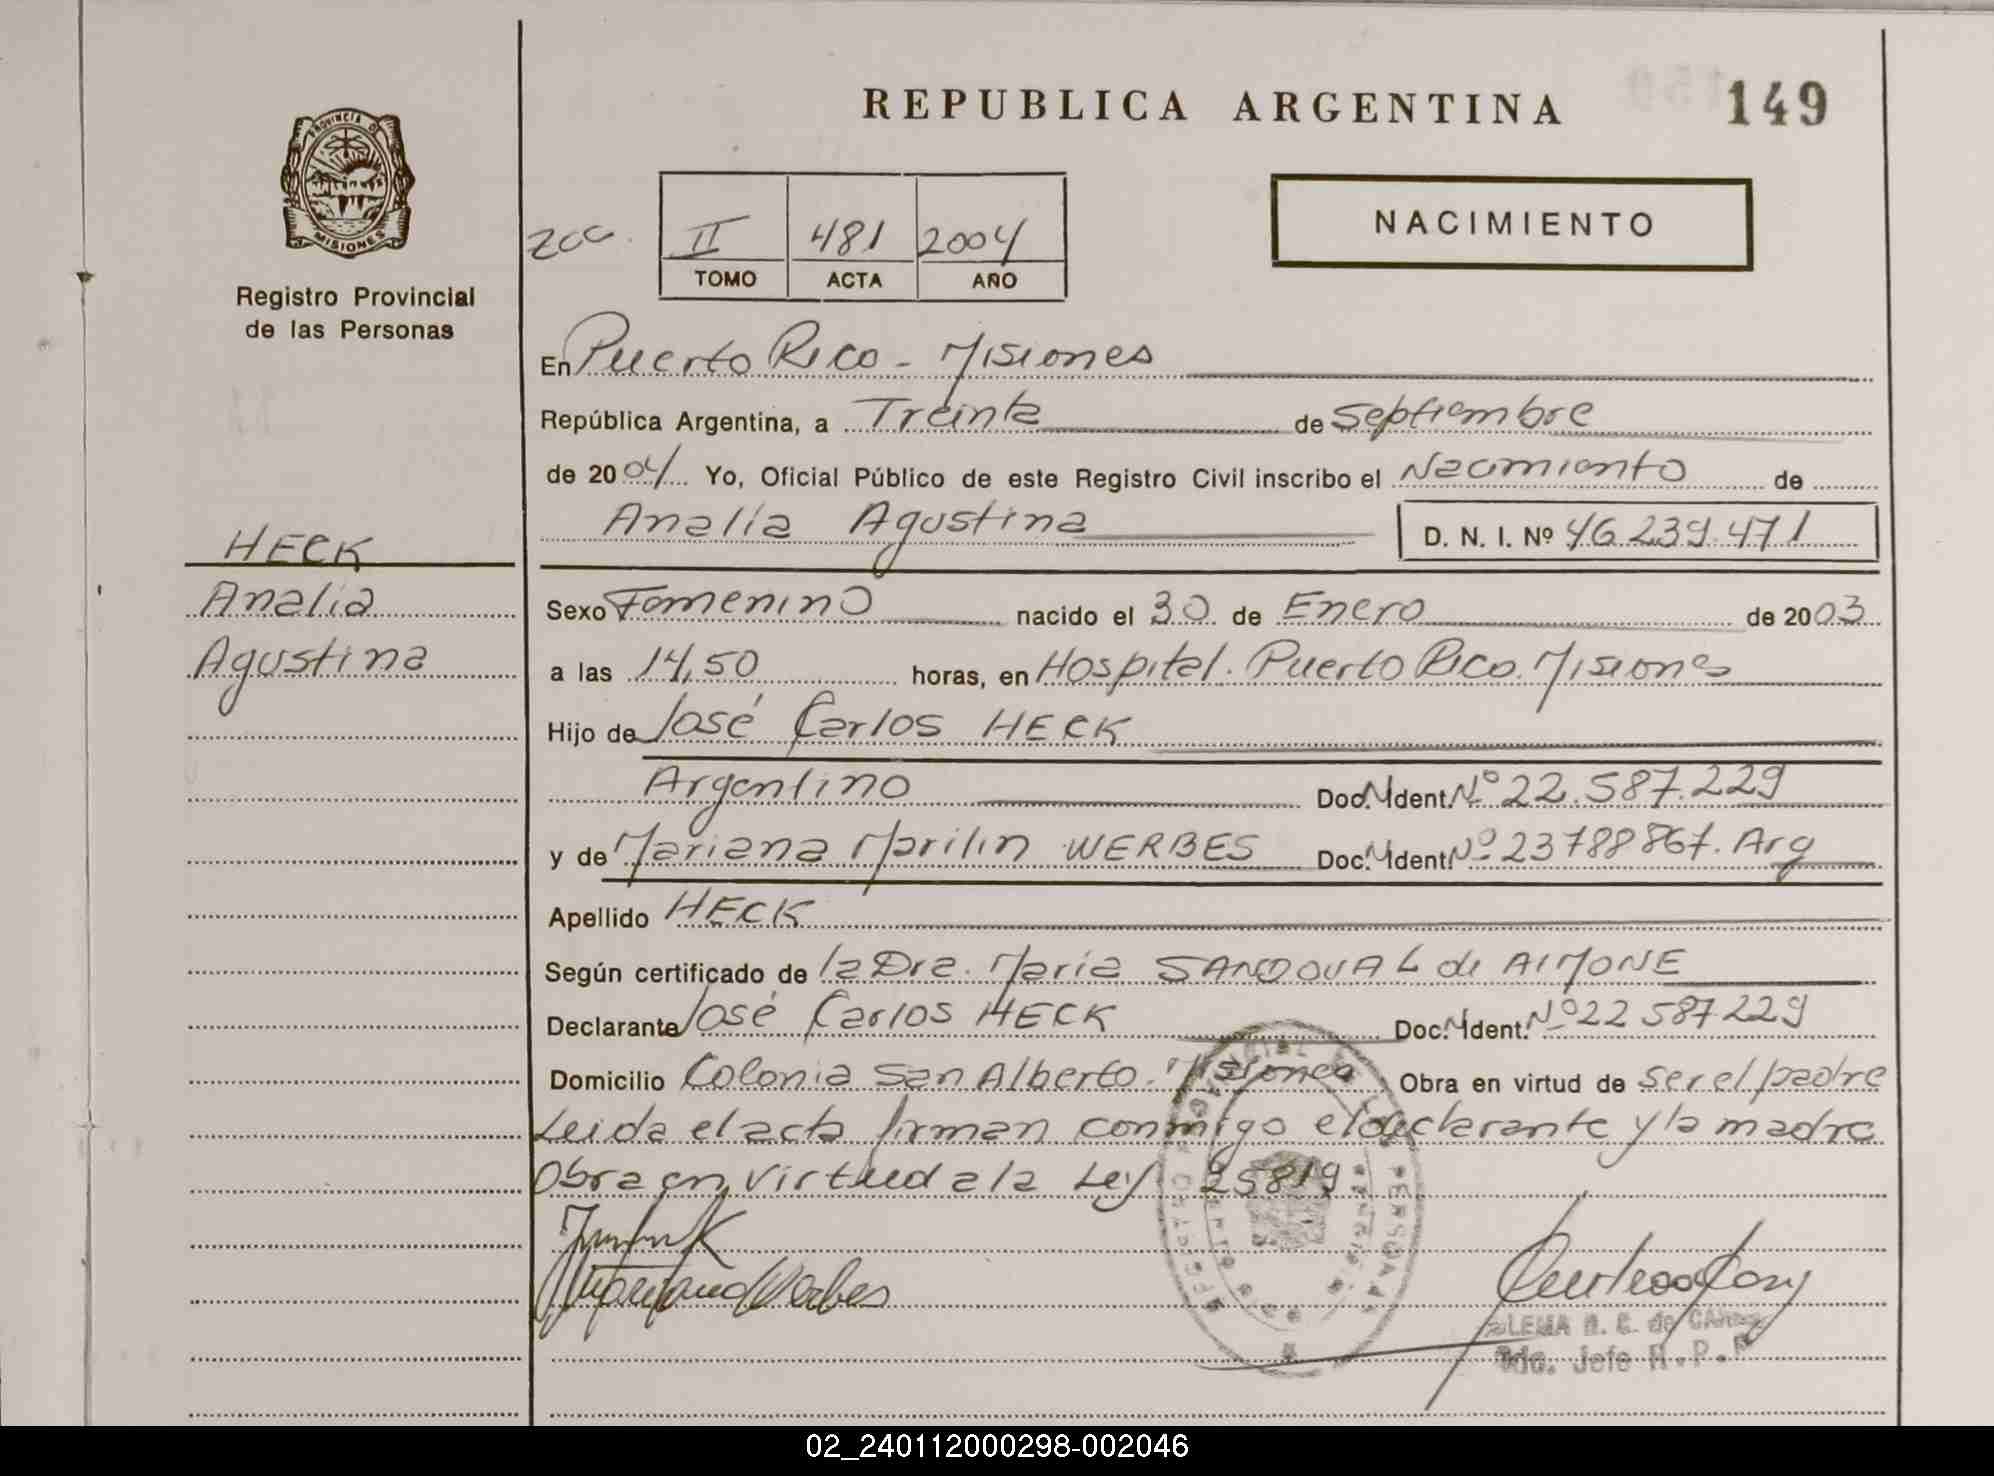 REPUBLICA ARGENTINA
149
PROVINCIA D
MISIONES
Registro Provincial
de las Personas
NACIMIENTO
II 481 2004
TOMO ACTA AÑO
En Puerto Rico - Misiones
República Argentina, a Treinta de Septiembre
de 2004 Yo, Oficial Público de este Registro Civil inscribo el Nacimiento de
Analía Agustina D. N. I. Nº 46.239.471
HECK
Analía
Agustina
Sexo Femenino nacido el 30 de Enero de 2003
a las 14,50 horas, en Hospital. Puerto Rico. Misiones
Hijo de José Carlos HECK
Argentino Doc. Ident. Nº 22.587.229
y de Mariana Marilin WERBES Doc. Ident. Nº 23788867. Arg
Apellido HECK
Según certificado de la Dra. María SANDOVAL de AIMONE
Declarante José Carlos HECK Doc. Ident. Nº 22 587 229
Domicilio Colonia San Alberto. Misiones Obra en virtud de ser el padre
Leida el acta firman conmigo el declarante y la madre
Obra en virtud a la Ley 25819
Jefe R.P.P
02_240112000298-002046